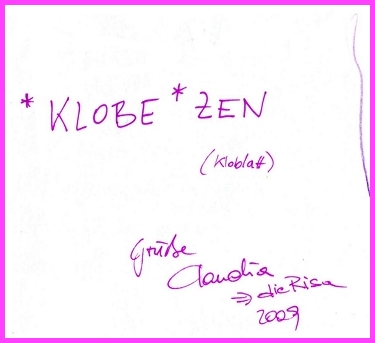 *KLOBE*ZEN
(Kloblatt)
Grüße
Claudia
⇒ die Risa
2009